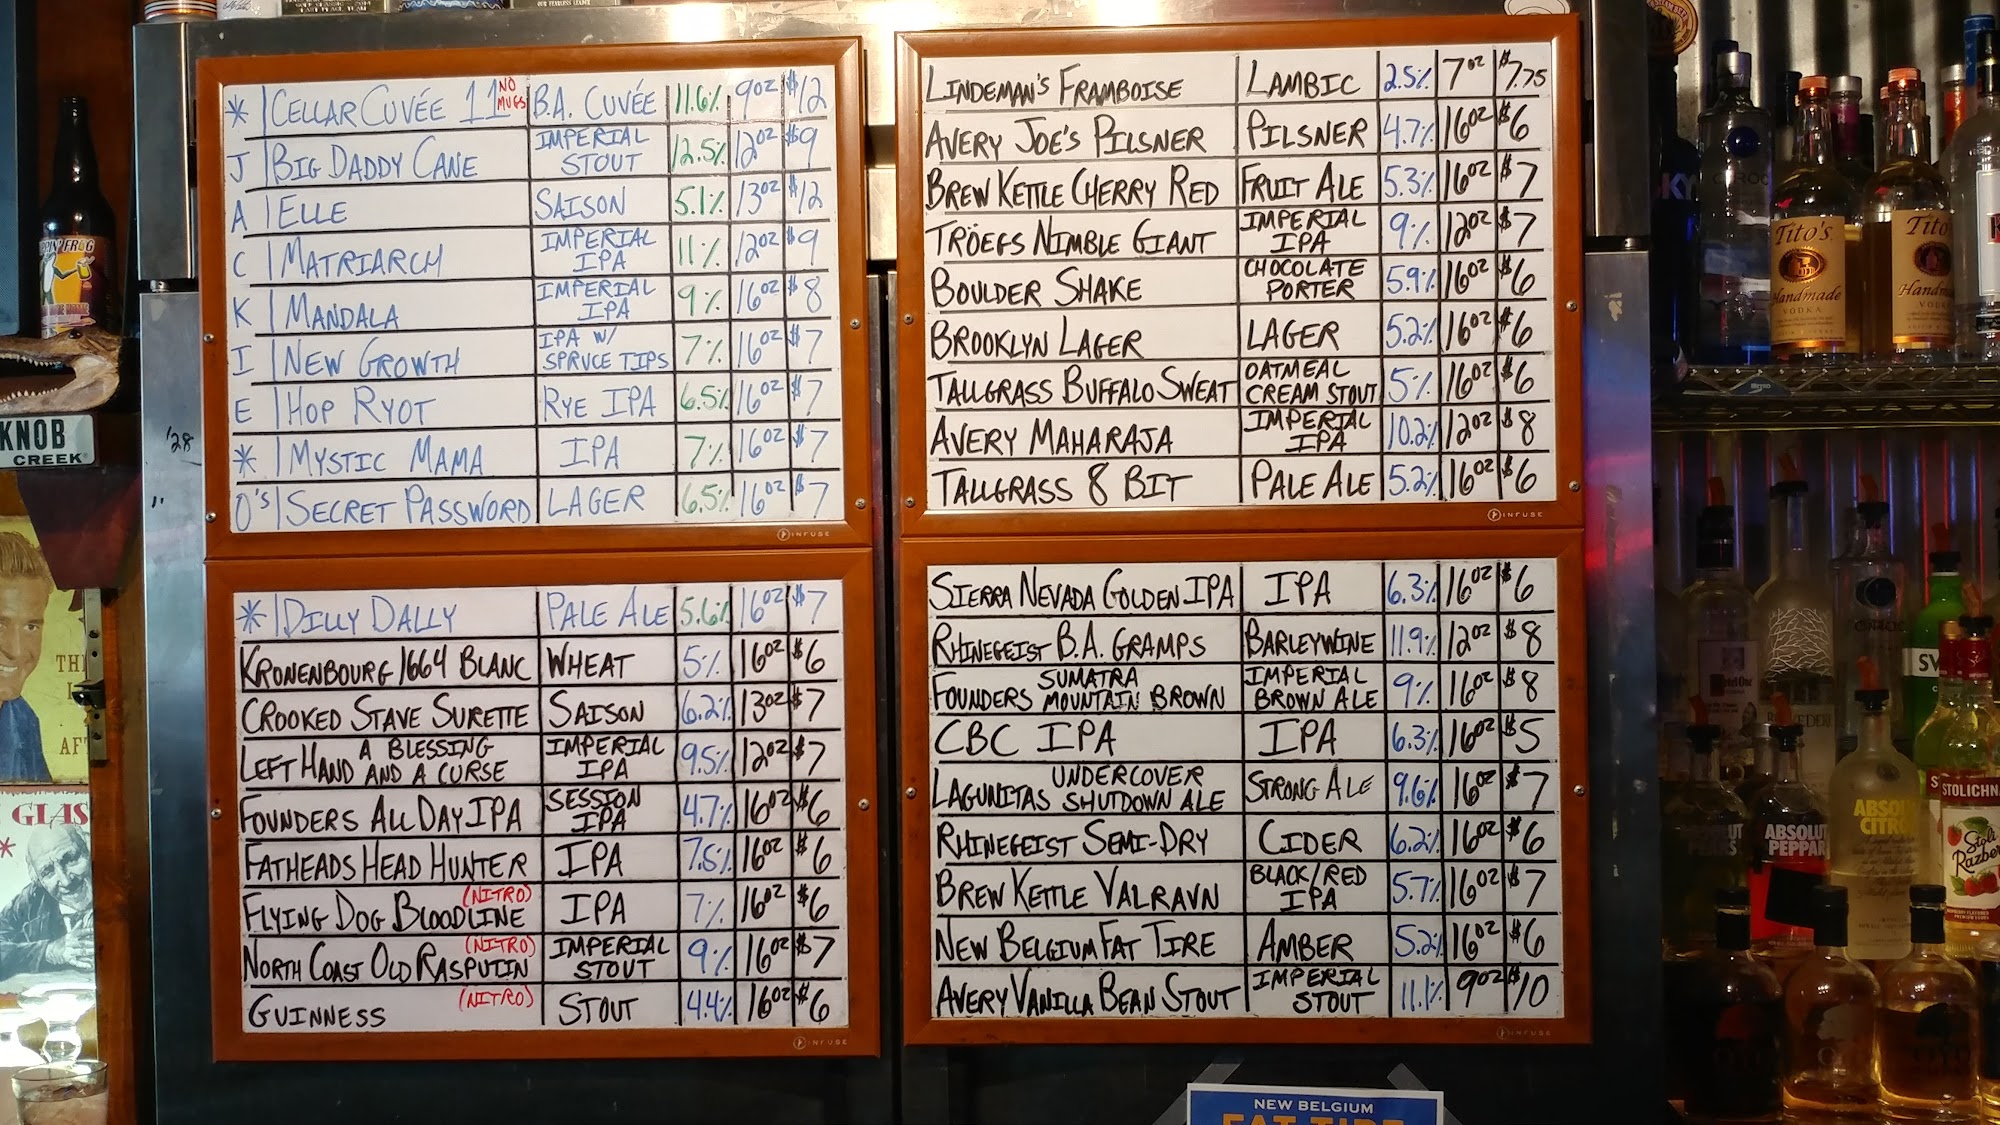 * CELLAR CUVÉE 11 NO MUGS B.A. CUVÉE 11.6% 9OZ $12
J BIG DADDY CANE IMPERIAL STOUT 12.5% 12OZ $9
A ELLE SAISON 5.1% 13OZ $12
C MATRIARCH IMPERIAL IPA 11% 12OZ $9
K MANDALA IMPERIAL IPA 9% 16OZ $8
I NEW GROWTH IPA W/ SPRUCE TIPS 7% 16OZ $7
E HOP RYOT RYE IPA 6.5% 16OZ $7
* MYSTIC MAMA IPA 7% 16OZ $7
O'S SECRET PASSWORD LAGER 6.5% 16OZ $7
INFUSE
* DILLY DALLY PALE ALE 5.6% 16OZ $7
KRONENBOURG 1664 BLANC WHEAT 5% 16OZ $6
CROOKED STAVE SURETTE SAISON 6.2% 13OZ $7
LEFT HAND A BLESSING AND A CURSE IMPERIAL IPA 9.5% 12OZ $7
FOUNDERS ALL DAY IPA SESSION IPA 4.7% 16OZ $6
FATHEADS HEAD HUNTER IPA 7.5% 16OZ $6
FLYING DOG BLOODLINE (NITRO) IPA 7% 16OZ $6
NORTH COAST OLD RASPUTIN (NITRO) IMPERIAL STOUT 9% 16OZ $7
GUINNESS (NITRO) STOUT 4.4% 16OZ $6
INFUSE
LINDEMAN'S FRAMBOISE LAMBIC 2.5% 7OZ $7.75
AVERY JOE'S PILSNER PILSNER 4.7% 16OZ $6
BREW KETTLE CHERRY RED FRUIT ALE 5.3% 16OZ $7
TRÖEGS NIMBLE GIANT IMPERIAL IPA 9% 12OZ $7
BOULDER SHAKE CHOCOLATE PORTER 5.9% 16OZ $6
BROOKLYN LAGER LAGER 5.2% 16OZ $6
TALLGRASS BUFFALO SWEAT OATMEAL CREAM STOUT 5% 16OZ $6
AVERY MAHARAJA IMPERIAL IPA 10.2% 12OZ $8
TALLGRASS 8 BIT PALE ALE 5.2% 16OZ $6
INFUSE
SIERRA NEVADA GOLDEN IPA IPA 6.3% 16OZ $6
RHINEGEIST B.A. GRAMPS BARLEYWINE 11.9% 12OZ $8
FOUNDERS SUMATRA MOUNTAIN BROWN IMPERIAL BROWN ALE 9% 16OZ $8
CBC IPA IPA 6.3% 16OZ $5
LAGUNITAS UNDERCOVER SHUTDOWN ALE STRONG ALE 9.6% 16OZ $7
RHINEGEIST SEMI-DRY CIDER 6.2% 16OZ $6
BREW KETTLE VALRAVN BLACK/RED IPA 5.7% 16OZ $7
NEW BELGIUM FAT TIRE AMBER 5.2% 16OZ $6
AVERY VANILLA BEAN STOUT IMPERIAL STOUT 11.1% 9OZ $10
INFUSE
NEW BELGIUM
FAT TIRE
KNOB
CREEK
'28
GLAS
Tito's
Handmade
VODKA
Tito's
ABSOLUT
PEPPAR
ABSOLUT
CITRON
STOLICHN
Stoli
Razber